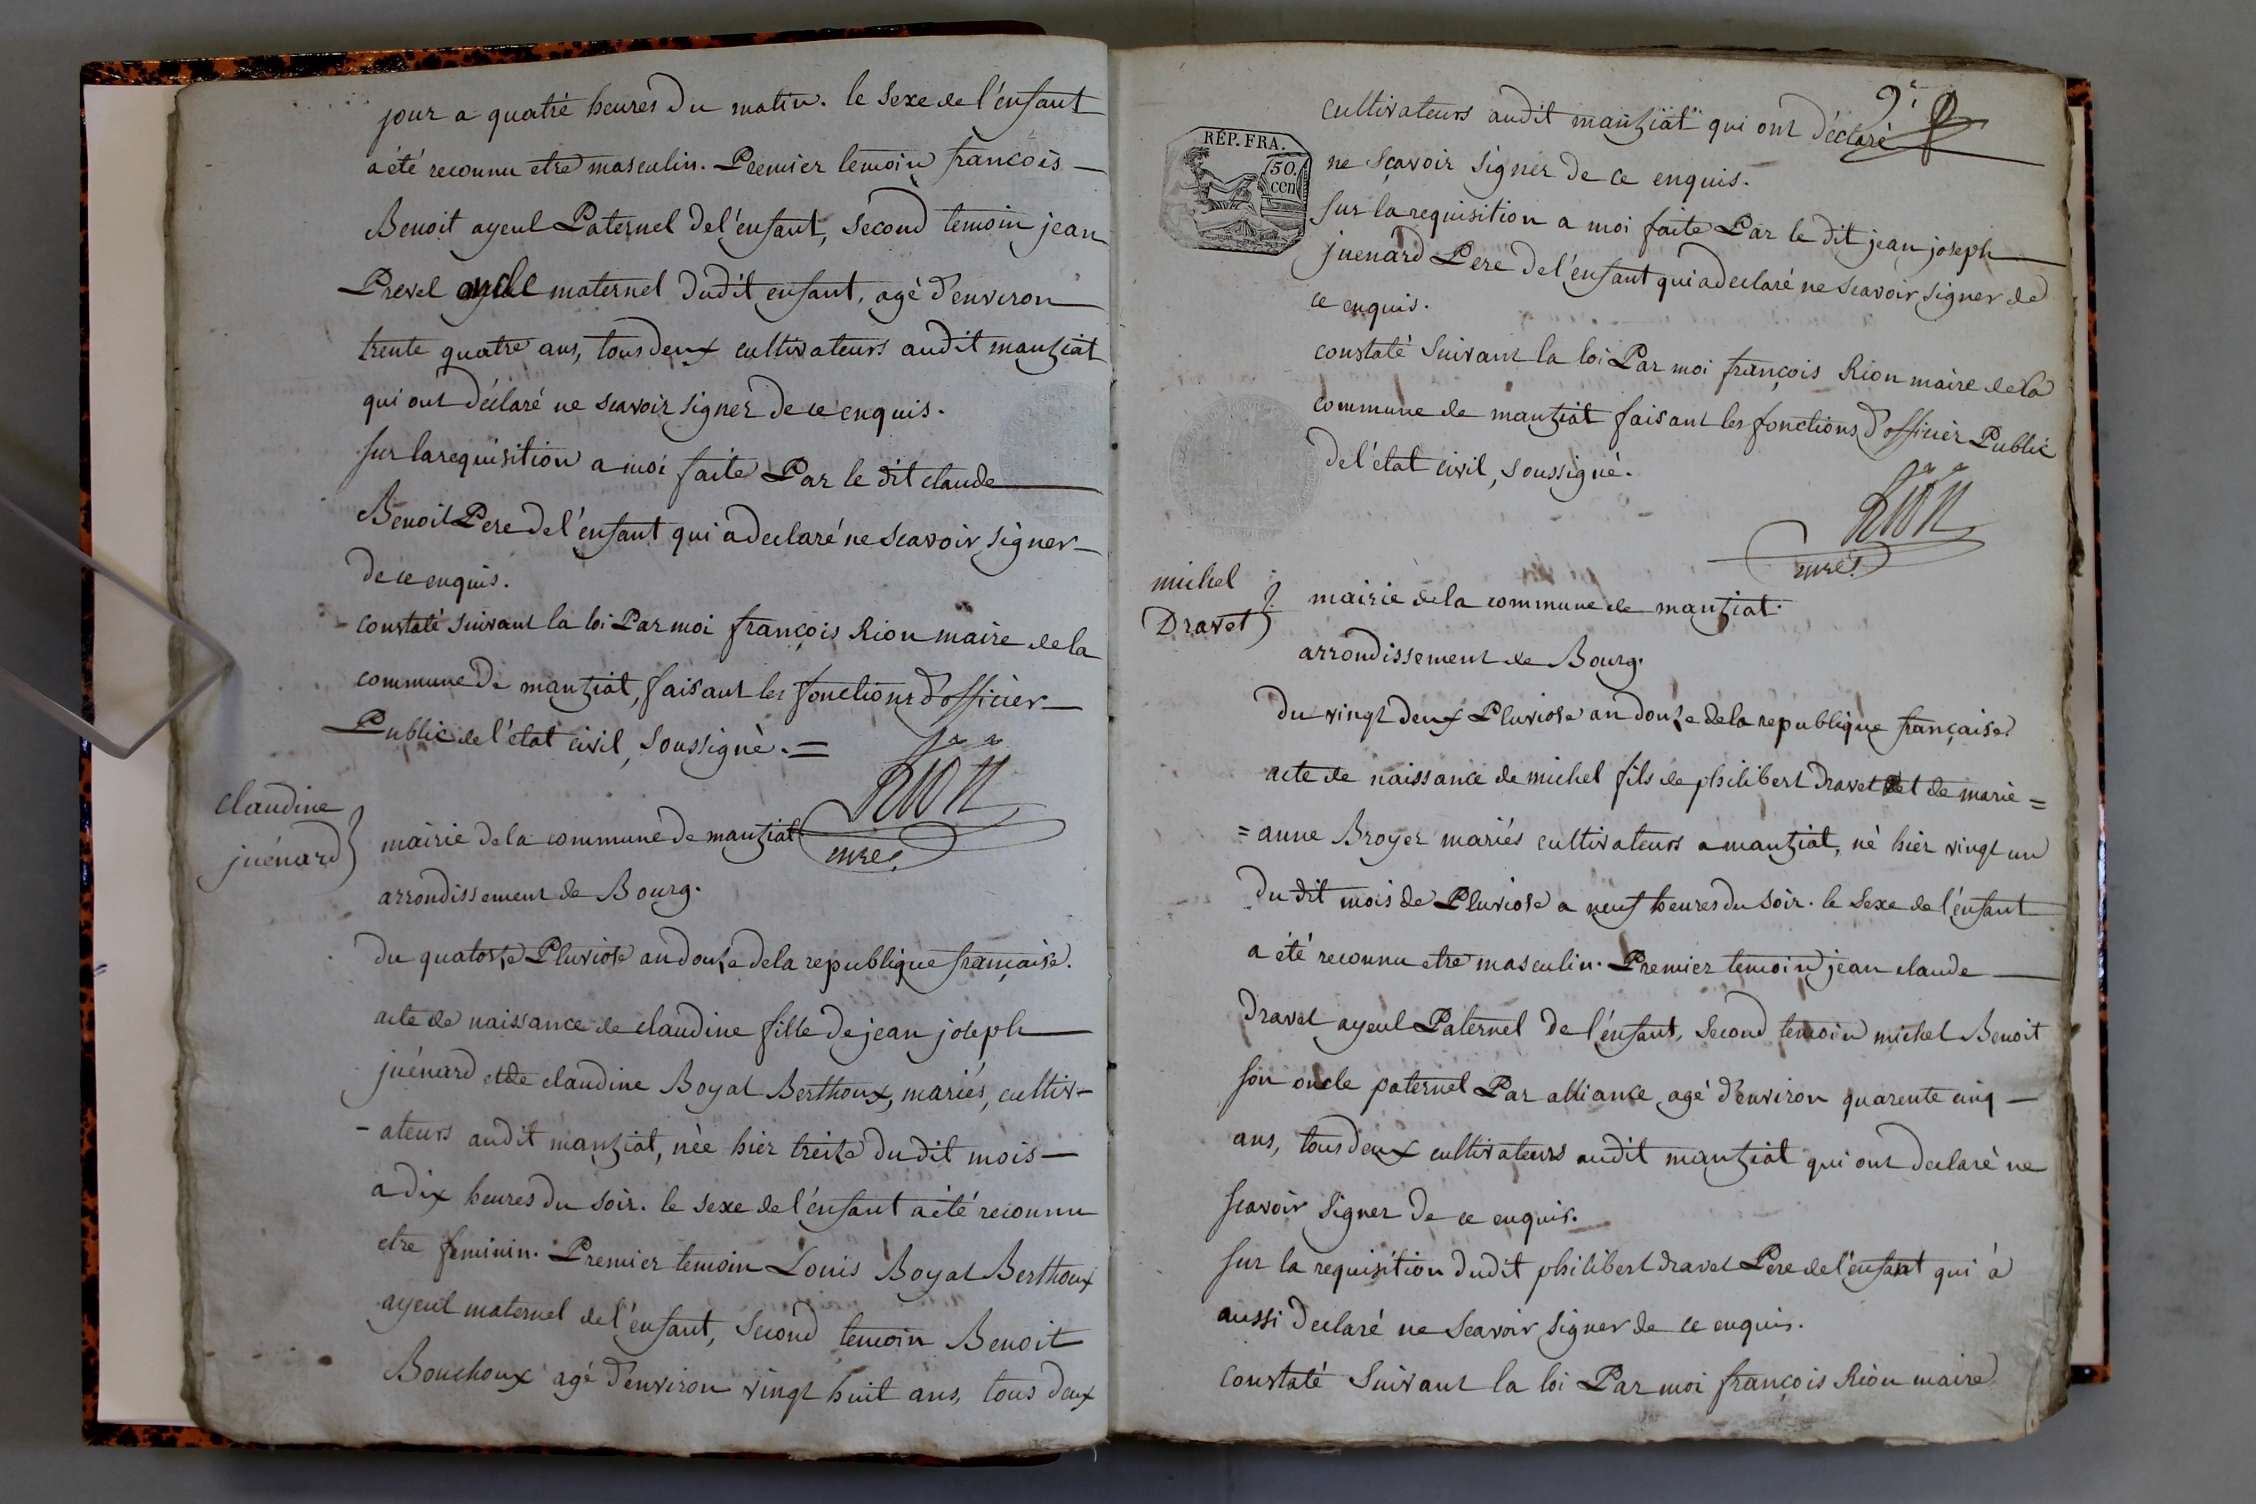 jour a quatre heures du matin. le sexe de l'enfant
a été reconnu etre masculin. Premier temoin francois
Benoit ayeul Paternel de l'enfant, second temoin jean
Prevel oncle maternel dudit enfant, agé d'environ
trente quatre ans, tous deux cultivateurs audit mantziat
qui ont déclaré ne scavoir signer de ce enquis.
sur la requisition a moi faite Par le dit claude
Benoit Pere de l'enfant qui a declaré ne scavoir signer
de ce enquis.
constaté suivant la loi Par moi françois Rion maire de la
commune de mantziat, faisant les fonctions d'officier
Public de l'état civil, soussigné. =
Rion
mre.
claudine
juénard
mairie de la commune de mantziat
arrondissement de Bourg.
du quatorze Pluviose an douze de la republique française.
acte de naissance de claudine fille de jean joseph
juénard et de claudine Boyat Berthoux, mariés, cultiv-
- ateurs audit mantziat, née hier treize du dit mois
a dix heures du soir. le sexe de l'enfant a été reconnu
etre feminin. Premier temoin Louis Boyat Berthoux
ayeul maternel de l'enfant, second temoin Benoit
Bouchoux agé d'environ vingt huit ans, tous deux
9e
RÉP. FRA.
50.
cen
cultivateurs audit mantziat qui ont déclaré
ne sçavoir signer de ce enquis.
sur la requisition a moi faite Par le dit jean joseph
juenard Pere de l'enfant qui a declaré ne scavoir signer de
ce enquis.
constaté suivant la loi Par moi françois Rion maire de la
commune de mantziat faisant les fonctions d'officier Public
de l'état civil, soussigné.
Rion
mre.
michel
Dravet
mairie de la commune de mantziat.
arrondissement de Bourg.
du vingt deux Pluviose an douze de la republique française.
acte de naissance de michel fils de philibert dravet et de marie =
= anne Broyer mariés cultivateurs a mantziat, né hier vingt un
du dit mois de Pluviose a neuf heures du soir. le sexe de l'enfant
a été reconnu etre masculin. Premier temoin jean claude
Dravet ayeul Paternel de l'enfant, second temoin michel Benoit
son oncle paternel Par alliance agé d'environ quarente cinq
ans, tous deux cultivateurs audit mantziat qui ont declaré ne
scavoir signer de ce enquis.
sur la requisition dudit philibert dravet Pere de l'enfant qui à
aussi declaré ne scavoir signer de ce enquis.
constaté suivant la loi Par moi françois Rion maire